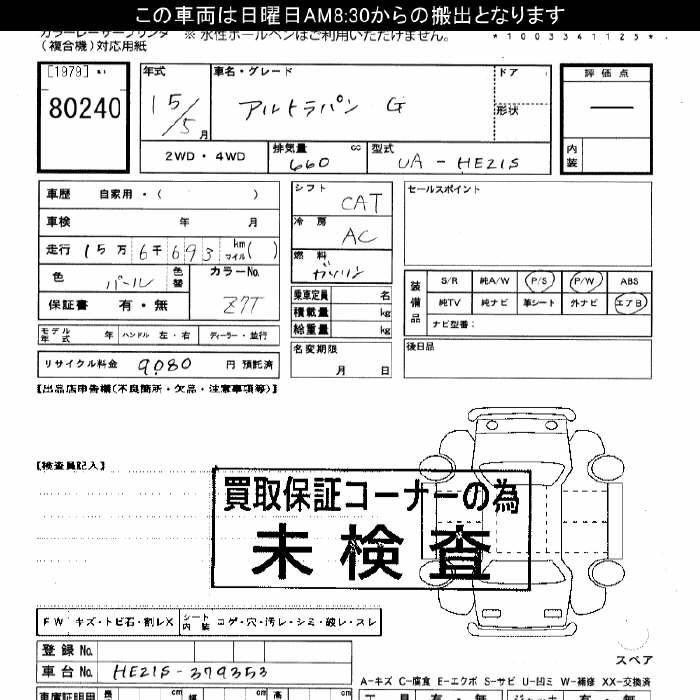 この車両は日曜日AM8:30からの搬出となります
カラーレーザープリンタ ※ 水性ボールペンはご利用いただけません。
(複合機)対応用紙
*1003341125*
[1979]
80240
年式
15/5月
車名・グレード
アルトラパン G
ドア
形状
評価点
—
内装
2WD・4WD
排気量 cc
660
型式
UA-HE21S
車歴 自家用・( )
車検 年 月
走行 15万6千693 km マイル( )
色 パール 色替
カラーNo.
Z7T
保証書 有・無
モデル年式 年 ハンドル 左・右 ディーラー・並行
リサイクル料金 9080 円 預託済
シフト
CAT
冷房
AC
燃料
ガソリン
乗車定員 名
積載量 kg
総重量 kg
名変期限
月 日
セールスポイント
装備品
S/R 純A/W P/S P/W ABS
純TV 純ナビ 革シート 外ナビ エアB
ナビ型番:
後日品
【出品店申告欄(不良箇所・欠品・注意事項等)】
【検査員記入】
買取保証コーナーの為
未検査
FW キズ・トビ石・割レX シート内装 コゲ・穴・汚レ・シミ・破レ・スレ
登録No.
車台No. HE21S-379353
スペア
A-キズ C-腐食 E-エクボ S-サビ U-凹ミ W-補修 XX-交換済
車庫証明用 長 cm 幅 cm 高 cm
工具 有・無 ジャッキ 有・無